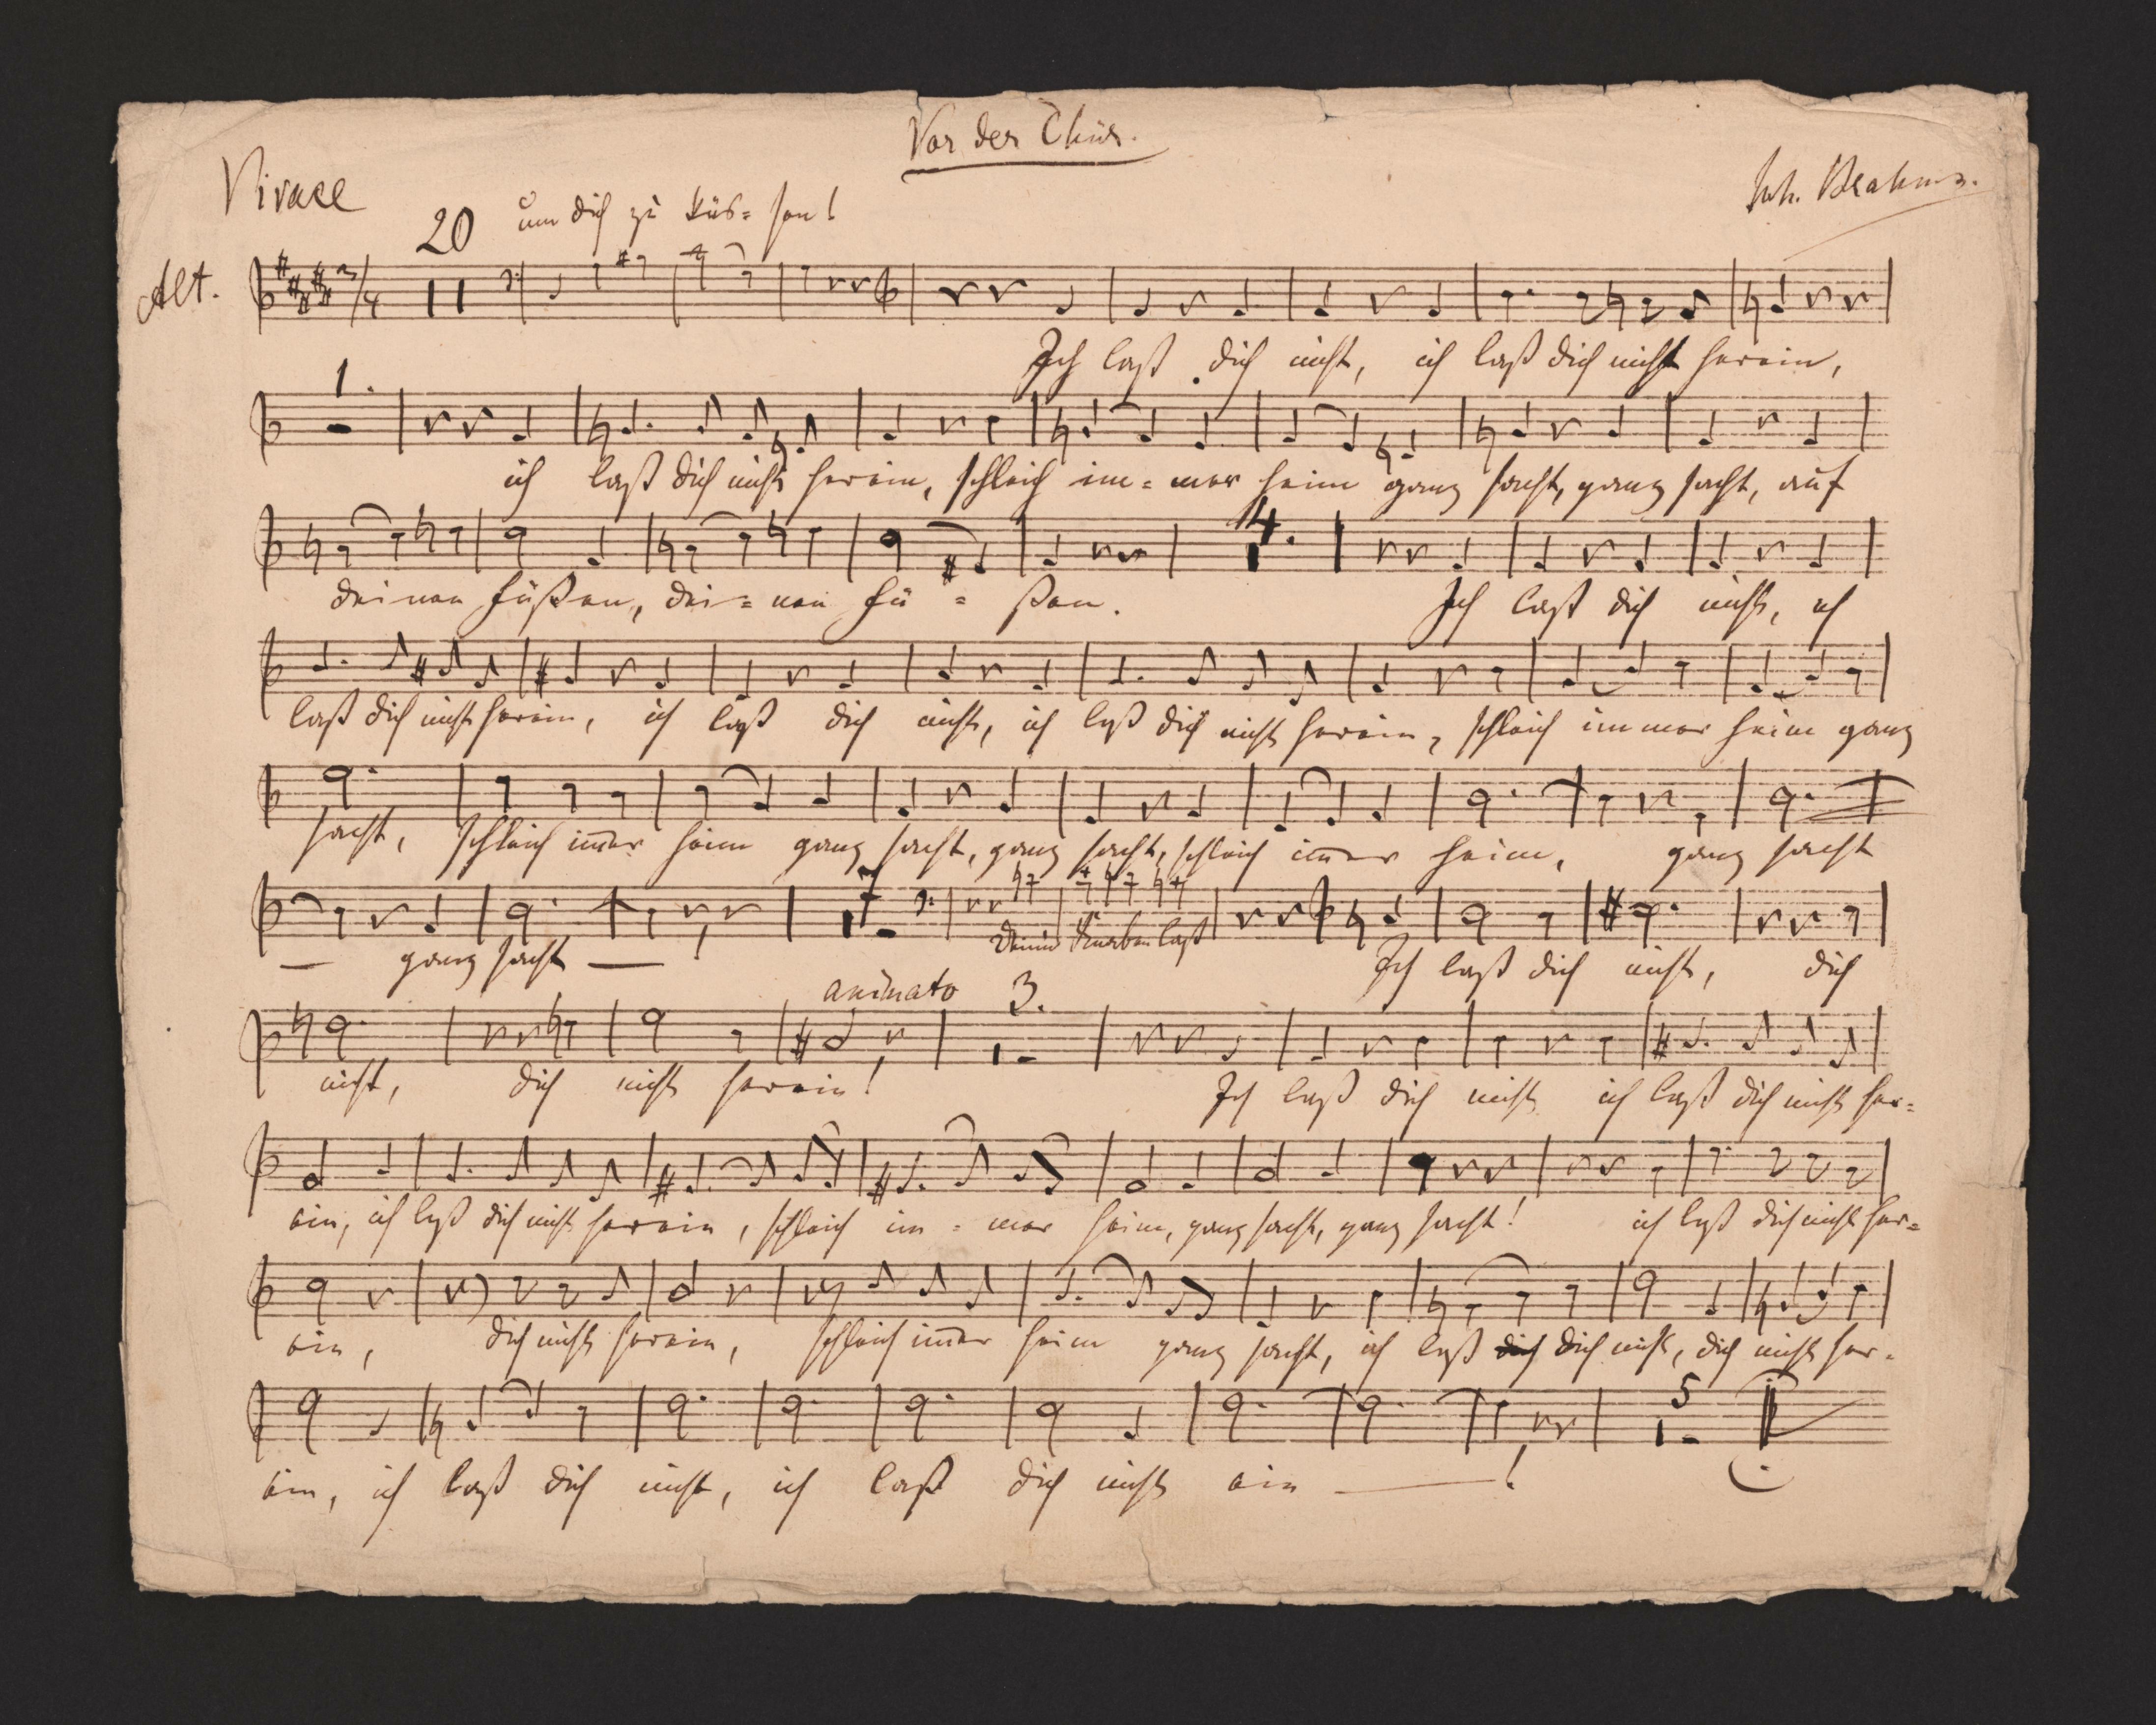 Vor der Thür.
Vivace
Joh. Brahms.
20 um dich zu küs= sen!
Alt.
3/4
Ich laß dich nicht, ich laß dich nicht herein,
1.
ich laß dich nicht herein, schleich im= mer heim ganz sacht, ganz sacht, auf
14.
deinen Füßen, dei= nen Fü = ßen. Ich laß dich nicht, ich
laß dich nicht herein, ich laß dich nicht, ich laß dich nicht herein, schleich immer heim ganz
sacht, schleich im̄er heim ganz sacht, ganz sacht, schleich im̄er heim, ganz sacht
7
— ganz sacht — ! laß Ich laß dich nicht, dich
animato 3.
nicht, dich nicht herein! Ich laß dich nicht ich laß dich nicht her=
ein, ich laß dich nicht herein, schleich im = mer heim, ganz sacht, ganz sacht! ich laß dich nicht her=
ein, dich nicht herein, schleich im̄er heim ganz sacht, ich laß dich nicht, dich nicht her=
5
ein, ich laß dich nicht, ich laß dich nicht ein — !